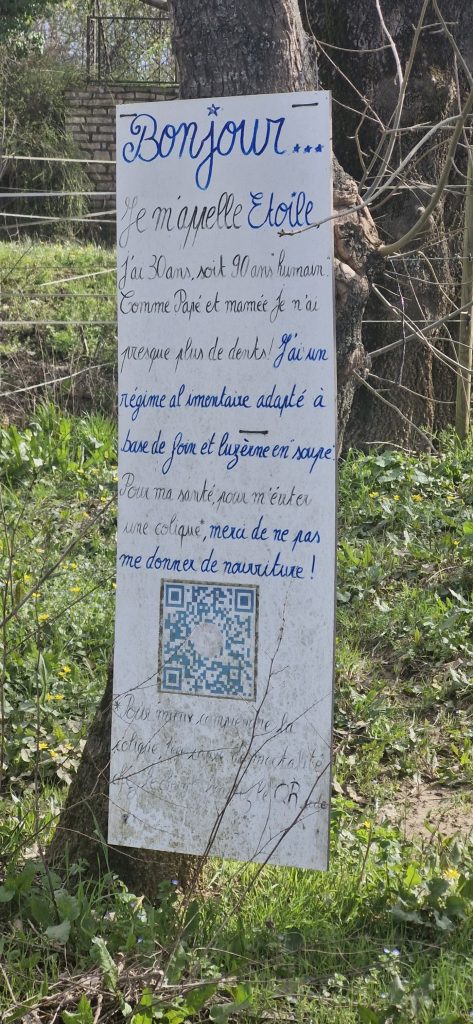 Bonjour...
Je m'appelle Etoile
J'ai 30 ans, soit 90 ans "humain".
Comme Papé et mamée je n'ai
presque plus de dents! J'ai un
régime alimentaire adapté à
base de foin et luzerne en "soupe".
Pour ma santé, pour m'éviter
une colique*, merci de ne pas
me donner de nourriture !
*Pour mieux comprendre la
colique
QR code